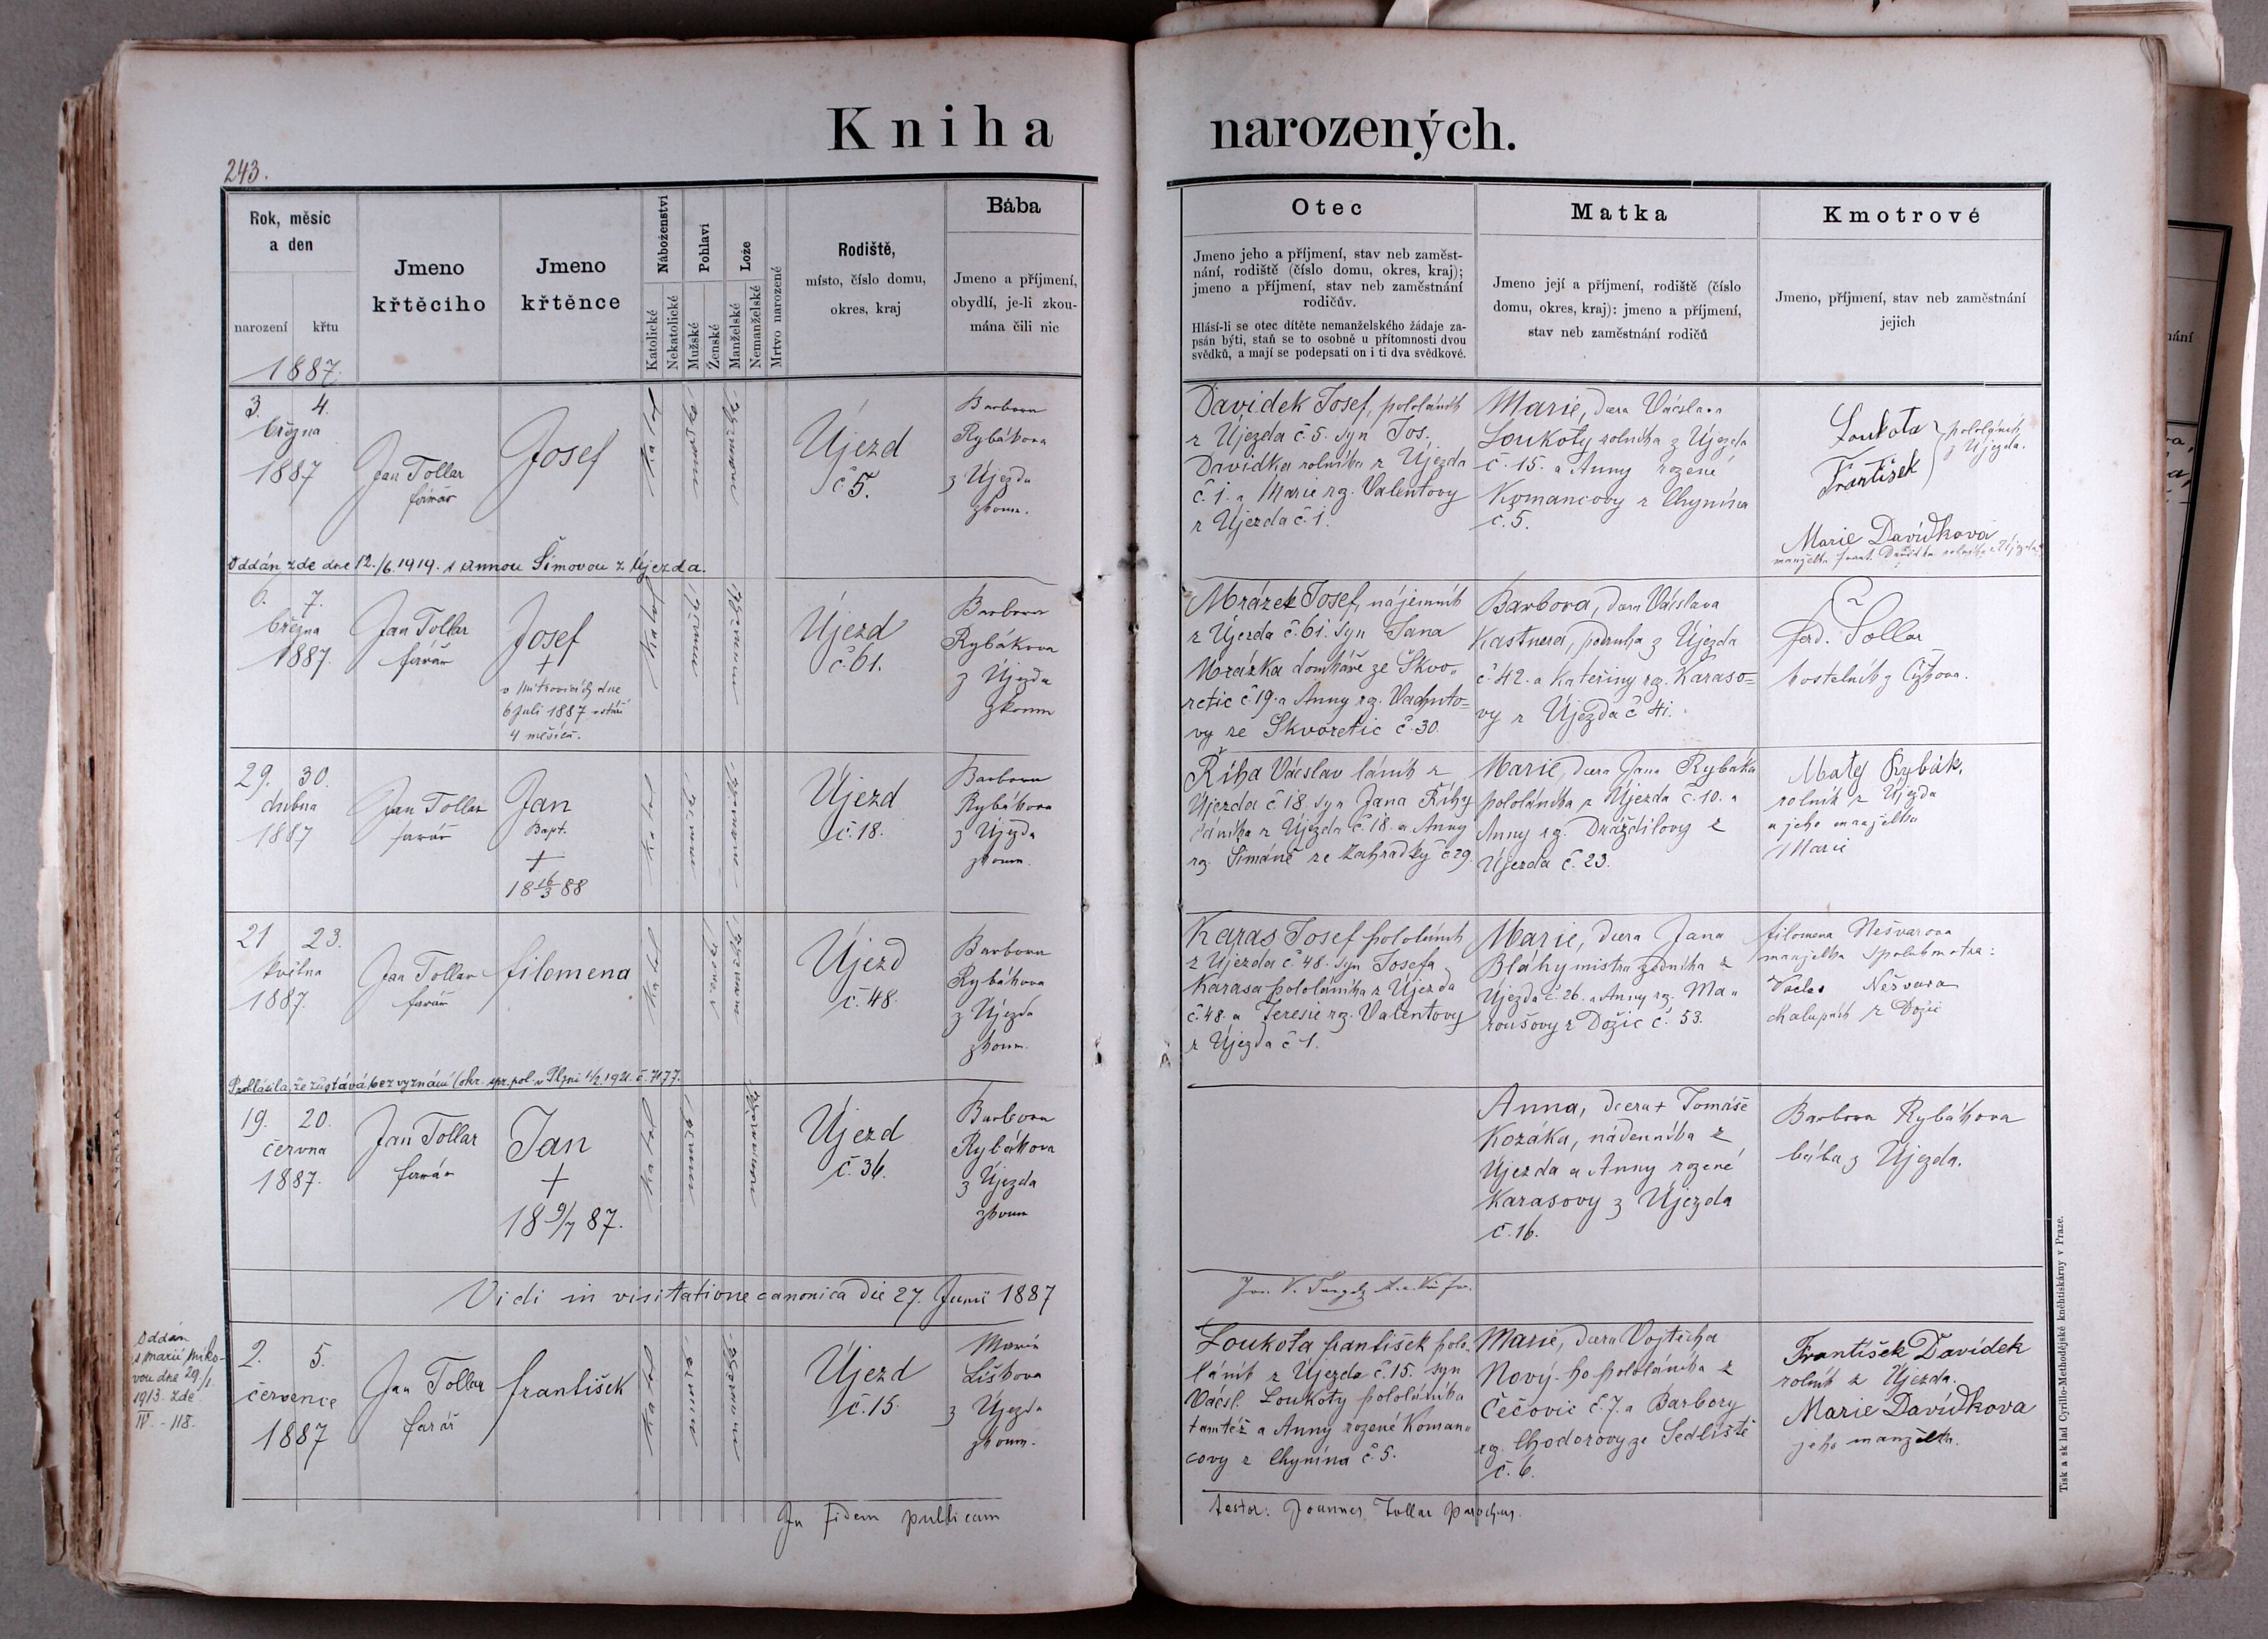 Kniha narozených.
243.
Rok, měsíc
a den
narození
křtu
1887.
Jmeno
křtěcího
Jmeno
křtěnce
Náboženství
Katolické
Nekatolické
Pohlaví
Mužské
Ženské
Lože
Manželské
Nemanželské
Mrtvo narozené
Rodiště,
místo, číslo domu,
okres, kraj
Bába
Jmeno a příjmení,
obydlí, je-li zkou-
mána čili nic
Otec
Jmeno jeho a příjmení, stav neb zaměst-
nání, rodiště (číslo domu, okres, kraj);
jmeno a příjmení, stav neb zaměstnání
rodičův.
Hlásí-li se otec dítěte nemanželského žádaje za-
psán býti, staň se to osobně u přítomnosti dvou
svědků, a mají se podepsati on i ti dva svědkové.
Matka
Jmeno její a příjmení, rodiště (číslo
domu, okres, kraj): jmeno a příjmení,
stav neb zaměstnání rodičů
Kmotrové
Jmeno, příjmení, stav neb zaměstnání
jejich
3. 4.
března
1887
Jan Tollar
farář
Josef
Újezd
č 5.
Barbora
Rybákova
z Újezda
zkoum.
Davídek Josef, pololáník
z Újezda č 5. syn Jos.
Davídka rolníka z Újezda
č. 1. a Marie rz. Valentovy
z Újezda č 1.
Marie, dcera Vácslava
Loukoty rolníka z Újezda
č. 15. a Anny rozené
Komancovy z Chynína
č. 5.
Loukota
František
pololáník
z Újezda.
Marie Davídkova
manželka Frant. Davídka rolníka z Újezda
Oddán zde dne 12./6. 1919. s Annou Šímovou z Újezda.
6. 7.
března
1887.
Jan Tollar
farář
Josef
+
v Mitrovicích dne
6 Juli 1887 v stáří
4 měsíců.
Újezd
č. 61.
Barbora
Rybákova
z Újezda
zkoum
Mrázek Josef, nájemník
z Újezda č. 61. syn Jana
Mrázka domkáře ze Škvo-
retic č 19. a Anny rz. Vachuto-
vy ze Škvořetic č. 30.
Barbora, dcera Vácslava
Kastnera, podruha z Újezda
č. 42. a Kateřiny rz. Karaso-
vy z Újezda č 41.
Ferd. Tollar
kostelník z Čížkova.
29. 30.
dubna
1887
Jan Tollar
farář
Jan
Bapt.
+
18 16/3 88
Újezd
č. 18.
Barbora
Rybákova
z Újezda
zkoum.
Říha Vácslav láník z
Újezda č 18. syn Jana Říhy
láníka z Újezda č. 18. a Anny
rz. Šimáně ze Zahrádky č 29.
Marie, dcera Jana Rybáka
pololáníka z Újezda č. 10. a
Anny rz. Draždilovy z
Újezda č. 23.
Matěj Rybák,
rolník z Újezda
a jeho manželka
Marie
21 23.
května
1887.
Jan Tollar
farář
Filomena
Újezd
č. 48.
Barbora
Rybákova
z Újezda
zkoum.
Karas Josef pololáník
z Újezda č. 48. syn Josefa
Karasa pololáníka z Újezda
č. 48. a Terezie rz. Valentovy
z Újezda č 1.
Marie, dcera Jana
Bláhy mistra zedníka z
Újezda č. 26. a Anny rz. Ma-
roušovy z Dožic č. 53.
Filomena Nešvarova
manželka spolukmotra:
Václav Nešvara
chalupník z Dožic
Prohlásila, že zůstává bez vyznání (okr. spr. pol. v Plzni 1/2. 1921. č. 7177.
19. 20.
června
1887.
Jan Tollar
farář
Jan
+
18 9/7 87.
Újezd
č. 36.
Barbora
Rybákova
z Újezda
zkoum
Anna, dcera + Tomáše
Kozáka, nádenníka z
Újezda a Anny rozené
Karasovy z Újezda
č. 16.
Barbora Rybákova
bába z Újezda.
Vidi in visitatione canonica die 27. Junii 1887
Oddán
s Marií Míko-
vou dne 29./1.
1913. zde
IV. - 118.
2. 5.
července
1887
Jan Tollar
farář
František
Újezd
č. 15.
Marie
Liškova
z Újezda
zkoum.
Loukota František polo-
láník z Újezda č. 15. syn
Vácsl. Loukoty pololáníka
tamtéž a Anny rozené Koman-
covy z Chynína č. 5.
Marie, dcera Vojtěcha
Nový-ho pololáníka z
Čečovic č. 7. a Barbory
rz. Chodorovy ze Sedliště
č. 6.
František Davídek
rolník z Újezda.
Marie Davídkova
jeho manželka.
In fidem publicam
testor: Joannes Tollar parochus.
Tisk a sklad Cyrillo-Methodějské kněhtiskárny v Praze.